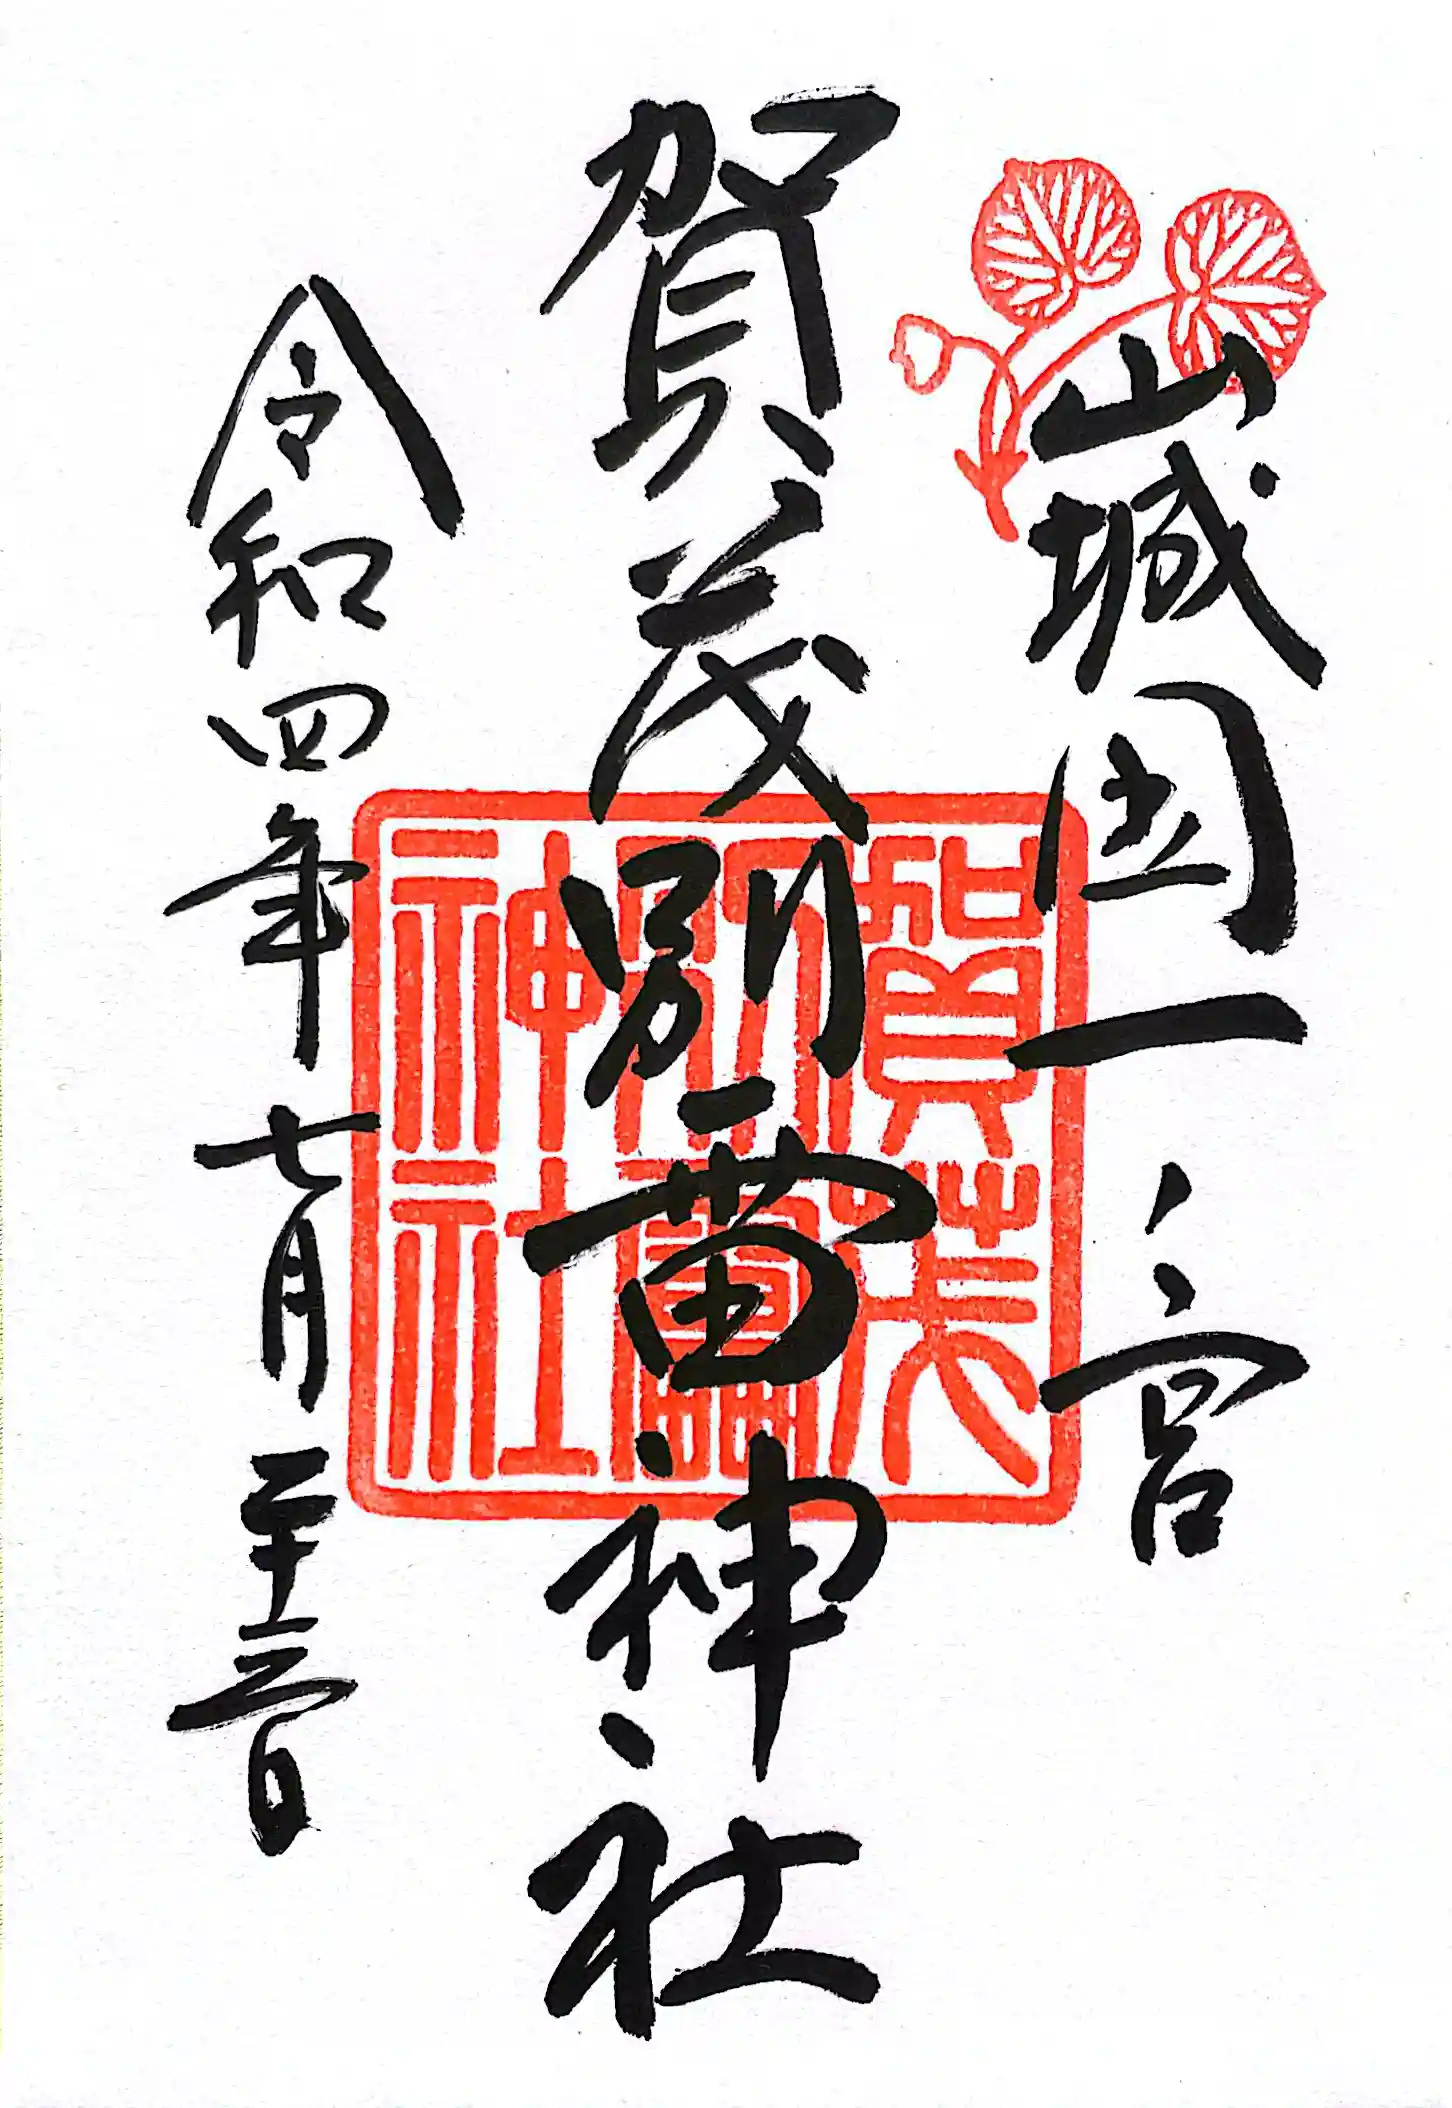 山城国一ノ宮
賀茂別雷神社
賀茂
別雷
神社
令和四年七月二十三日